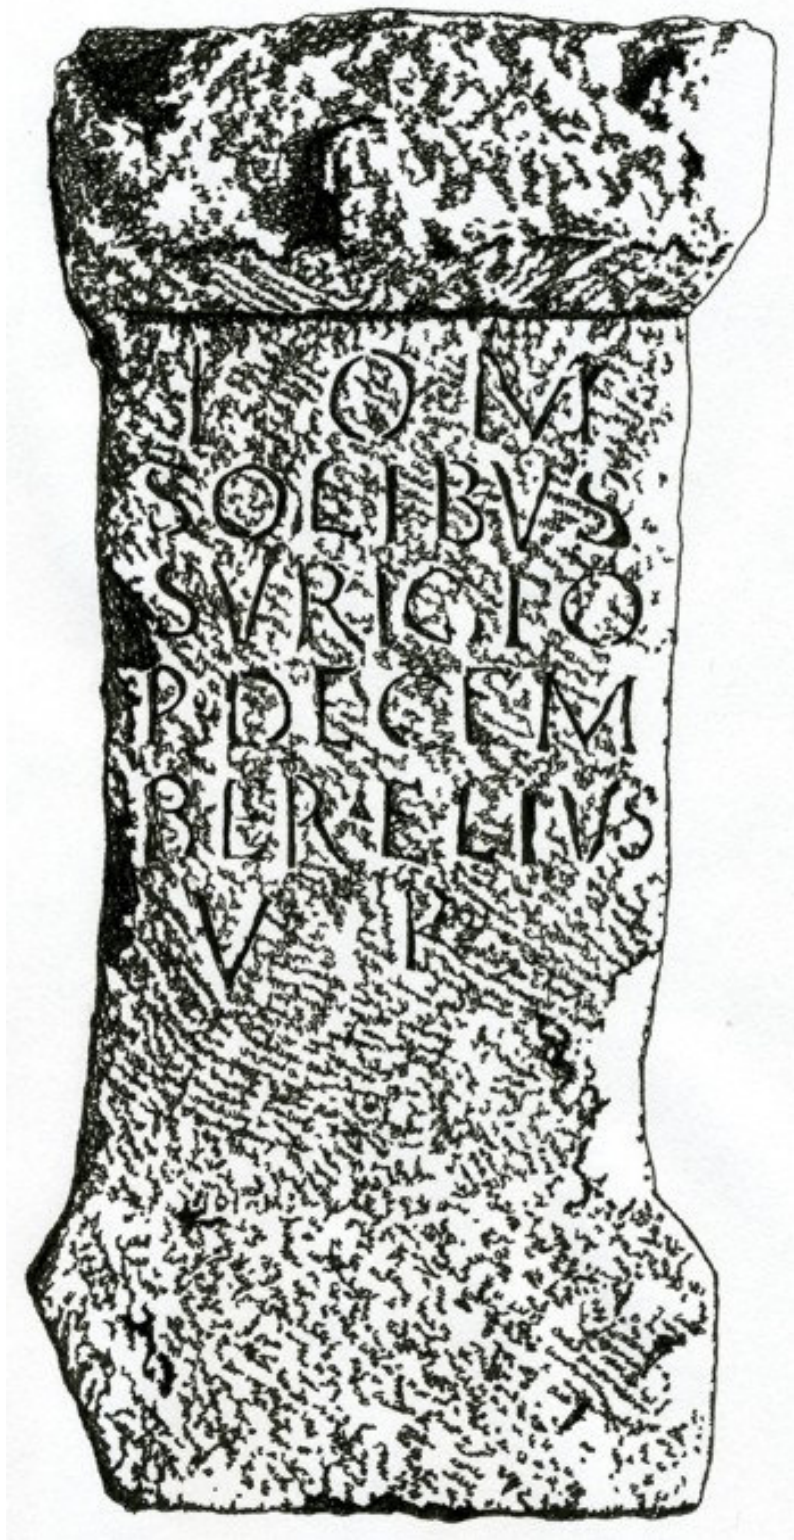 I O M
SOLIBVS
SVRICIO
P DECEM
BER ELIVS
V P